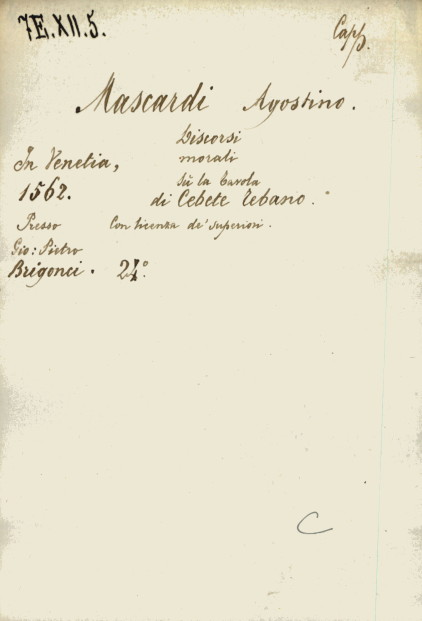 7E.XII.5.
Capp.
Mascardi Agostino.
Discorsi
morali
sù la tavola
di Cebete Tebano.
Con licenza de' superiori.
In Venetia,
1562.
Presso
Gio: Pietro
Brigonci.
24º.
C